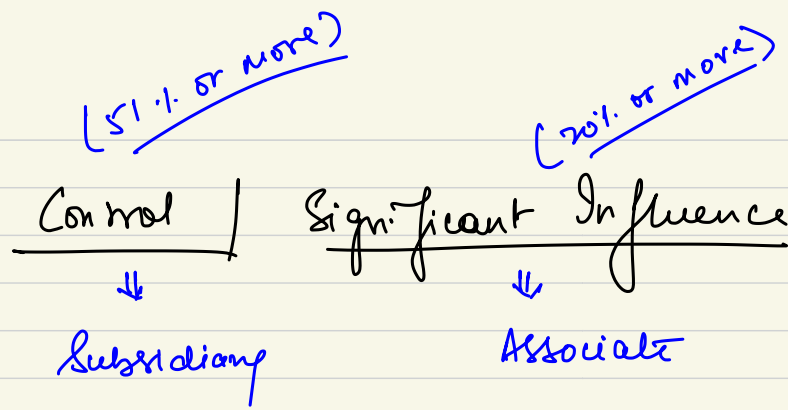 (51 % or more)
(20% or more)
Control | Significant Influence
⇓ ⇓
Subsidiary Associate